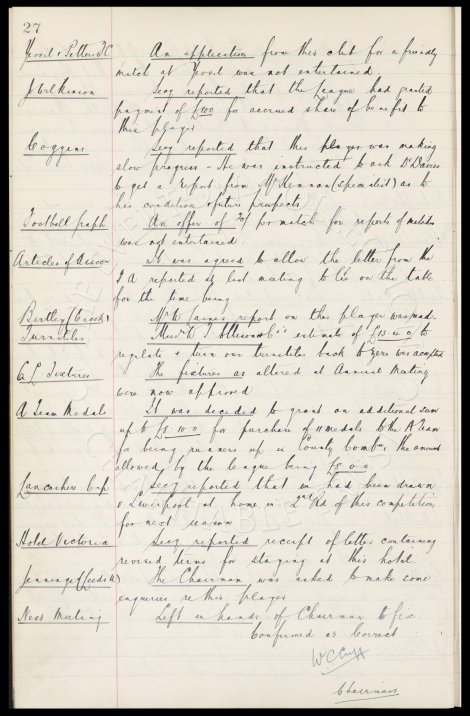 27
Yeovil & Petters F.C An application from this club for a friendly
match at Yeovil was not entertained.
J Wilkinson Secy reported that the League had granted
payment of £100 for accrued share of benefit to
this player
Coggins Secy reported that this player was making
slow progress - He was instructed to ask Dr Davies
to get a report from Mr Kennan (Specialist) as to
his condition & future prospects
Football Graph An offer of for match for reports of matches
was not entertained
Articles of Assocn It was agreed to allow the letter from the
F A reported at last meeting to lie on the table
for the time being
Birtley (Crook) Mr W report on this player was read.
Turnstiles Messrs W T Ellison & Co's estimate of £13-4-0 to
regulate & turn our turnstiles back to zero was accepted
C L Fixtures The fixtures as altered at Annual Meeting
were now approved
A Team Medals It was decided to grant an additional sum
up to for purchase of 11 medals to the A Team
for being runners up in County Combn, the amount
allowed by the league being
Lancashire Cup Secy reported that we had been drawn
v Liverpool at home in 2nd Rd of this competition
for next season
Hotel Victoria Secy reported receipt of letter containing
revised terms for staying at this hotel.
Jennings (Leeds U) The Chairman was asked to make some
enquiries re this player
Next Meeting Left in hands of Chairman to fix
Confirmed as Correct
W C Cuff
Chairman